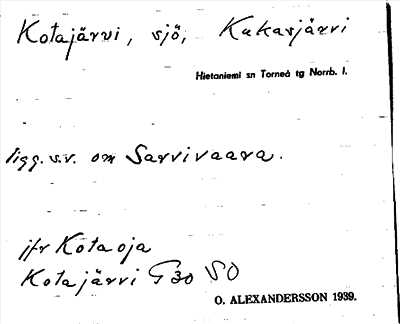 Kotajärvi, sjö, Kukasjärvi
Hietaniemi sn Torneå tg Norrb. l.
ligg. s.v. om Sarvivaara.
jfr Kotaoja
Kotajärvi G30 SO
O. ALEXANDERSSON 1939.